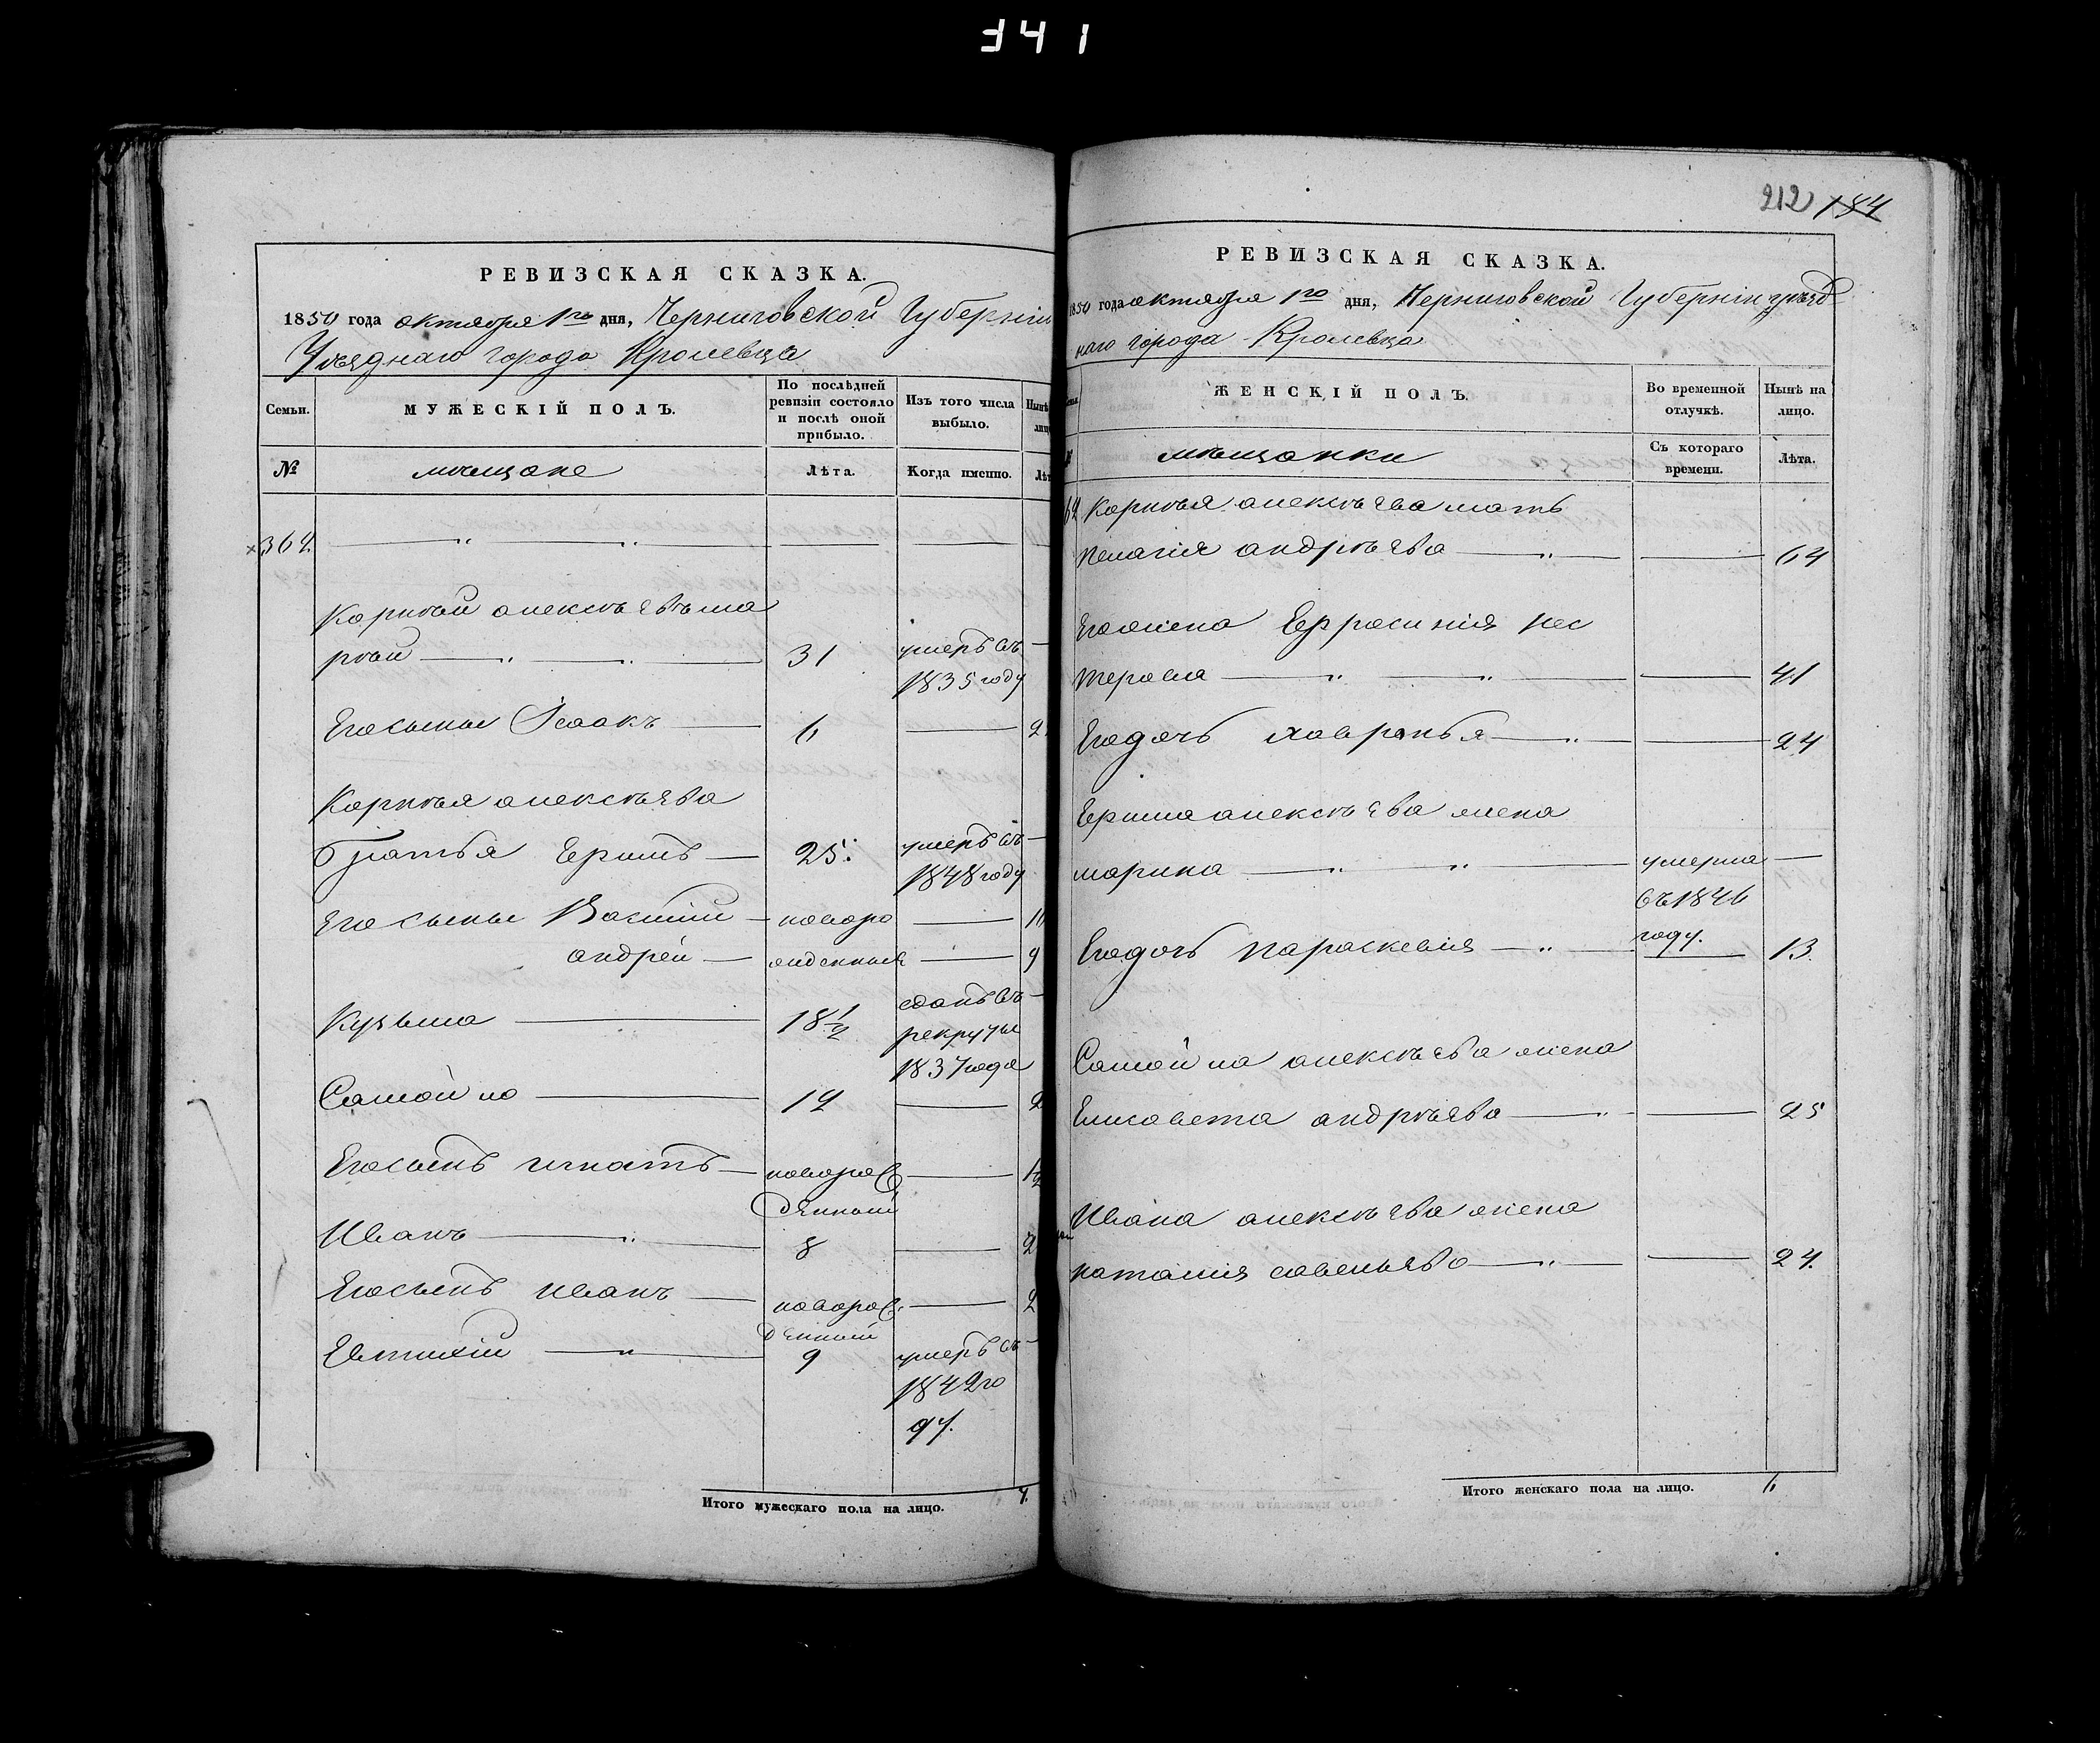 341
РЕВИЗСКАЯ СКАЗКА.
1850 года октября 1го дня, Черниговской Губернии
Уѣзднаго города Кролевца
Семьи.
МУЖЕСКІЙ ПОЛЪ.
По послѣдней ревизіи состояло и послѣ оной прибыло.
Изъ того числа выбыло.
№
мѣщане
Лѣта.
Когда именно.
364.
Корнѣй алексѣевъ ма
рѣй 31 умеръ въ
1835 году
Его сыны Ісаакъ 6
Корнѣя алексѣева
братья Ефимъ 25. умеръ въ
1848 году
Его сыны новоро
андрей жденные 9
Кузьма 18½ сданъ въ
рекруты
1837 года
Самойло 12
Его сынъ игнатъ новорож
денный
Иванъ 8
Его сынъ иванъ новорож
денный
Евтихій 9 умеръ въ
1842 го
ду.
Итого мужескаго пола на лицо.
212 184
РЕВИЗСКАЯ СКАЗКА.
1850 года октября 1го дня, Черниговской Губерніи уѣзд
наго города Кролевца
ЖЕНСКІЙ ПОЛЪ.
Во временной отлучкѣ.
Нынѣ на лицо.
мѣщанки
Съ котораго времени.
Лѣта.
Корнѣя алексѣева мать
пелагія андрѣева 64
Его жена Ефросинія нес
терова 41
Его дочь хавронья 24
Ефима алексѣева жена
марина умерла
въ 1846
году.
Его дочь параскевія 13.
Самойла алексѣева жена
Елисавета андрѣева 25
Ивана алексѣева жена
наталия савельева 24.
Итого женскаго пола на лицо. 6